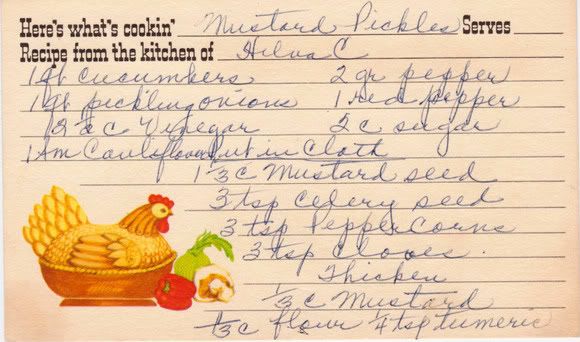 Here's what's cookin' Mustard Pickles Serves
Recipe from the kitchen of Hilva C
1 qt cucumbers 2 gr pepper
1 qt pickling onions 1 red pepper
c Vinegar 2 c sugar
1 sm Cauliflower Put in Cloth
1 1/3 c Mustard seed
3 tsp Celery seed
3 tsp PepperCorns
3 tsp cloves.
Thicken
1/3 c Mustard
1/3 c flour 1/4 tsp tumeric